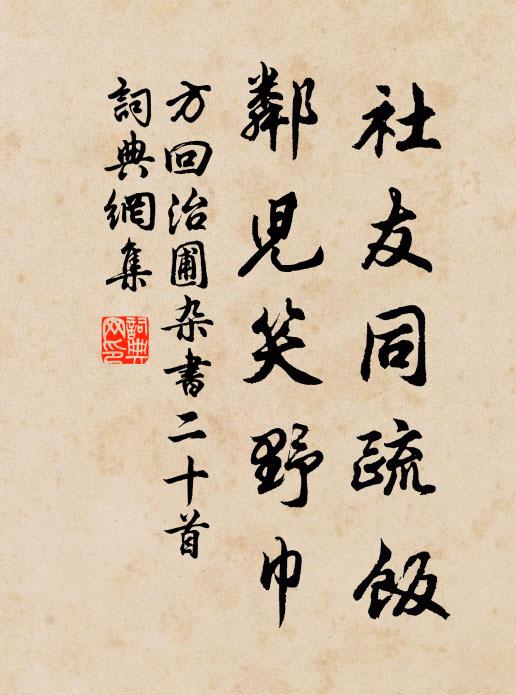 社友同疏飯
鄰児笑野巾
方回治圃杂書二十首
詞典網集
詞典
网印